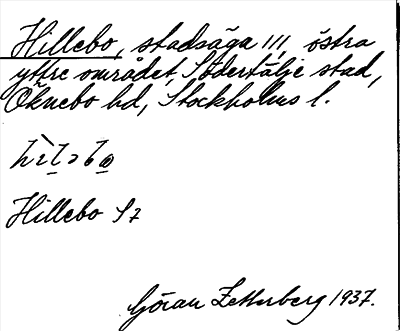 Hillebo, stadsäga 111, östra
yttre området, Södertälje stad,
Öknebo hd, Stockholms l.
Hillebo S 7
Göran Zetterberg 1937.